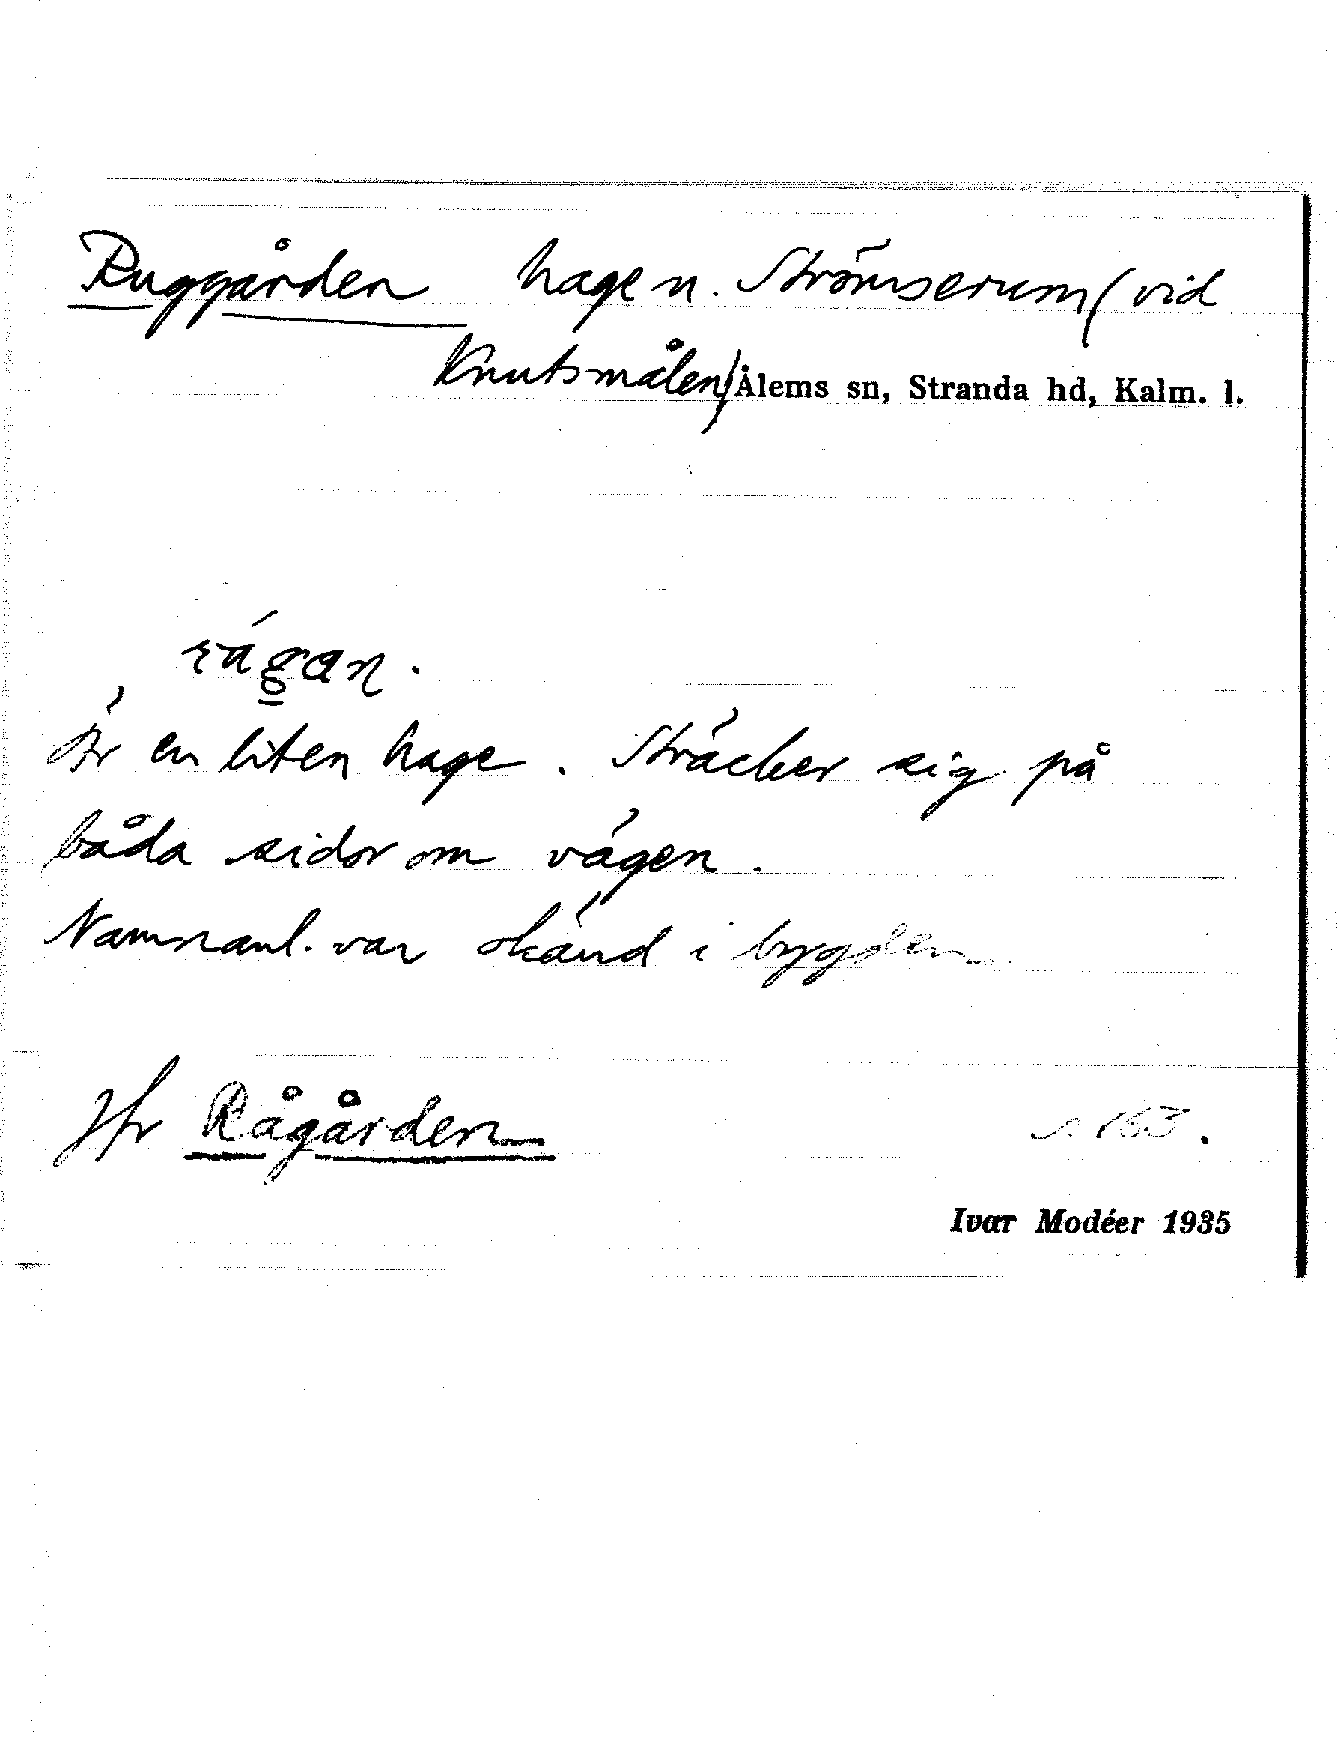 Ruggården hage n. Strömserum (vid
Knutsmålen) Ålems sn, Stranda hd, Kalm. l.
Är en liten hage. Sträcker sig på
båda sidor om vägen.
Namnanl. var okänd i bygden
Jfr Rågården s. 163.
Ivar Modéer 1935